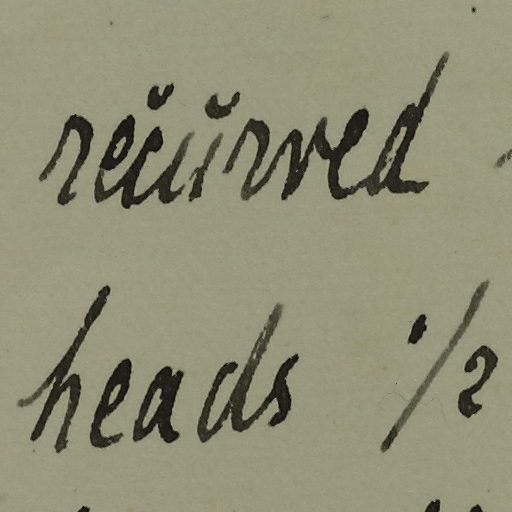 recurved
heads 1/2